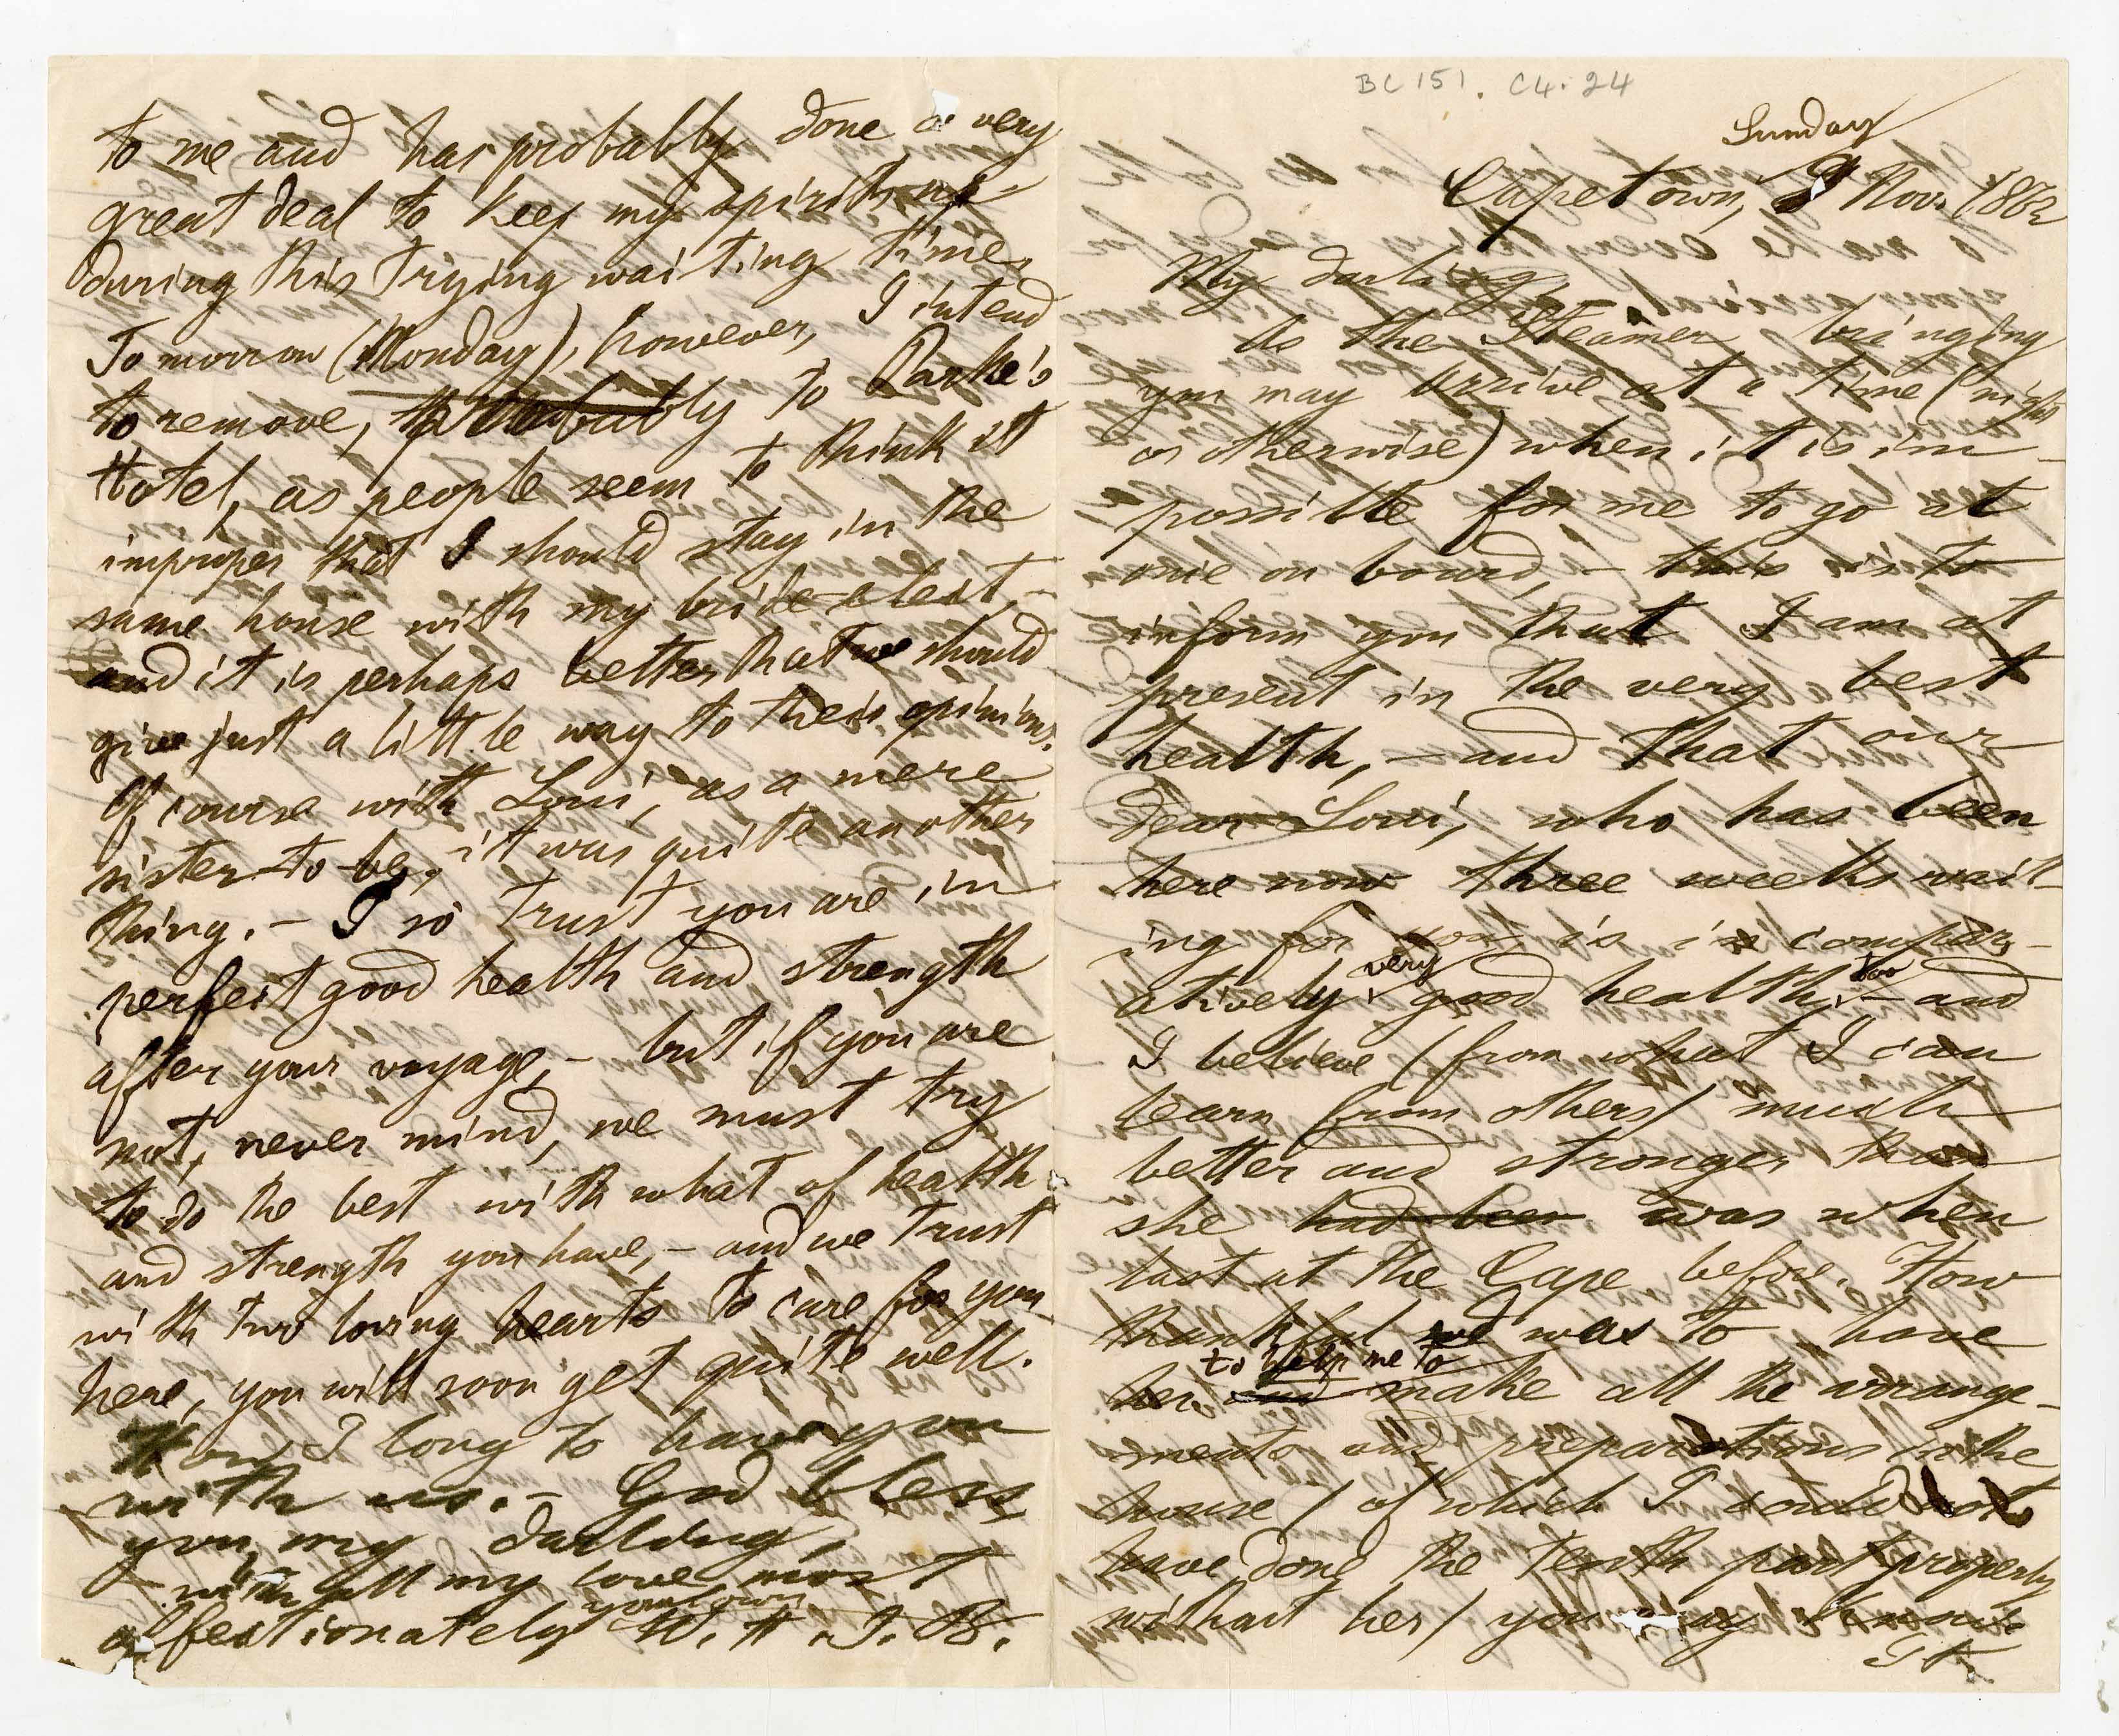 BC 151. C4.24
Sunday
Capetown, 9 Nov. 1862
My darling,
As the Steamer bringing
you may arrive at a time (night
or otherwise) when it is im-
possible for me to go at
once on board, - this is to
inform you that I am at
present in the very best
health, - and that our
dear Loui, who has been
here now three weeks wait-
ing for you, is in compar-
atively very good health, too - and
I believe (from what I can
learn from others) much
better and stronger than
she had been was when
last at the Cape before. How
thankful I was to have
her and to help me to make all the arrange-
ments and preparations in the
house (of which I could not
have done the tenth part properly
without her) you may
It
to me and has probably done a very
great deal to keep my spirits up
during this trying waiting time.
Tomorrow (Monday), however, I intend
to remove, probably to Parke's
Hotel, as people seem to think it
improper that I should stay in the
same house with my bride-elect, -
and it is perhaps better that we should
give just a little way to their opinions.
Of course with Loui, as a mere
sister-to-be, it was quite another
thing. - I so trust you are in
perfect good health and strength
after your voyage, - but if you are
not, never mind, we must try
to do the best with what of health
and strength you have, - and we trust
with two loving hearts to care for you
here, you will soon get quite well.
How I long to have you
with us. - God bless
you, my darling,
- with all my love most
affectionately your own W. H. I. B.